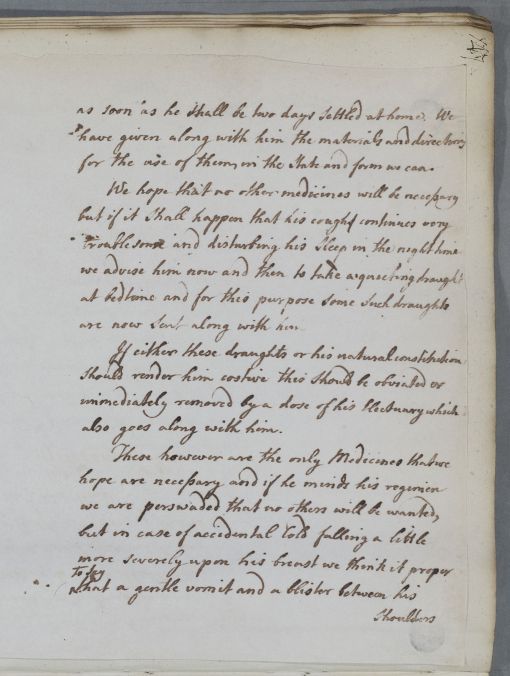 as soon as he shall be two days settled at home. We
have given along with him the materials and directions
for the use of them, in the State and form we can.
We hope that no other medicines will be necessary
but if it shall happen that his cough continues very
troublesome and disturbing his sleep in the night time
we advise him now and then to take a quieting draught
at bedtime and for this purpose some such draughts
are now sent along with him
If either these draughts or his natural constitution
should render him costive this should be obviated or
immediately removed by a dose of his Electuary which
also goes along with him.
These however are the only Medicines that we
hope are necessary and if he minds his regimen
we are perswaded that no others will be wanted,
but in case of accidental Cold falling a little
more severely upon his breast we think it proper
to say
that a gentle vomit and a blister between his
Shoulders